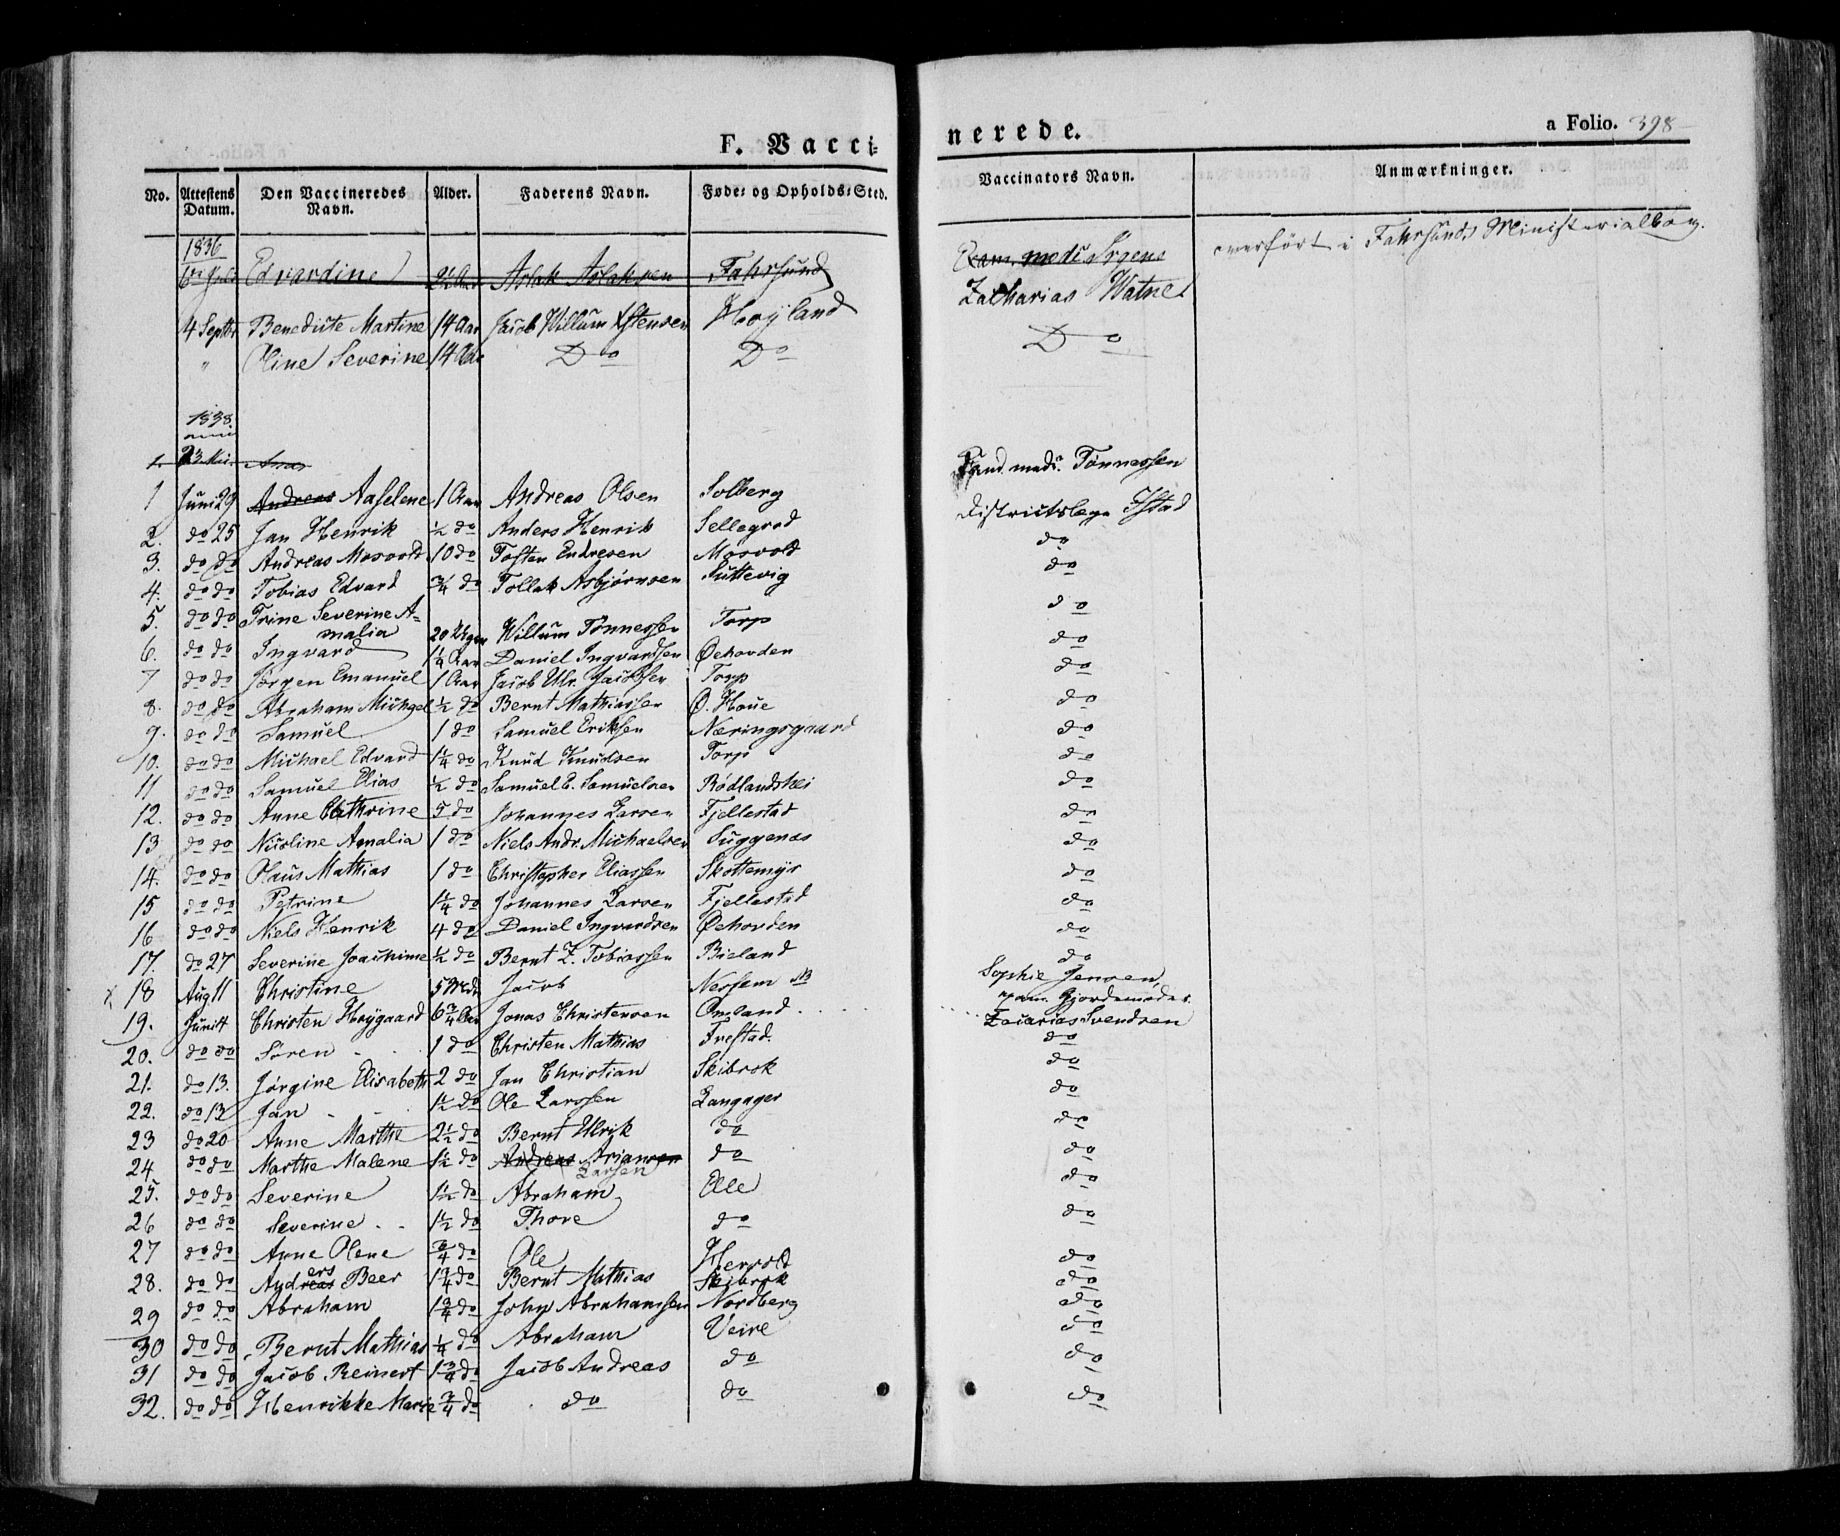 F. Vacci-
nerede.
a Folio. 398
No. Attestens Datum. Den Vaccineredes Navn. Alder. Faderens Navn. Føde- og Opholds-Sted. Vaccinators Navn. Anmærkninger.
1836
Edvardine Aslak Aslaksen Fahrsund overført i Fahrsunds Ministerialbog.
4 Septbr Benedicte Martine 14 Aar Jacob Willum Høyland Zacharias Watne
" Oline Severine 14 Aar Do Do Do
1838
1. 23
1 Juni 29 Andreas Aaselene 1 Aar Andreas Olsen Solberg Cand. med. Tønnessen
2. do 25 Jan Henrik ½ do Anders Henrik Sellegrod Districtslæge Ystad
3. do do Andreas Mosvold 10 do Tosten Endresen Mosvold do
4. do do Tobias Edvard ¾ do Tollak Asbjørnsen Suttevig do
5. do do Trine Severine A=
malia 20 Uger Willum Tønnessen Torp do
6. do do Ingvard 1¼ Aar Daniel Ingvardsen Øehovden do
7 do do Jørgen Emanuel 1 Aar Jacob Ulr. Jacobsen Torp do
8. do do Abraham Michael ½ do Bernt Mathiassen Ø. Houe do
9. do do Samuel 1 do Samuel Eriksen Næringsgaard do
10. do do Michael Edvard 1¼ do Knud Knudsen Torp do
11 do do Samuel Elias ½ do Samuel E. Samuelsen Rødlandshei do
12. do do Anne Cathrine 5 do Johannes Larsen Fjellestad do
13 do do Nicoline Amalia 1 do Niels Andr. Michaelsen Suggenæs do
14. do do Olaus Mathias 1 do Christopher Eliassen Skottemyr do
15 do do Petrine 1¼ do Johannes Larsen Fjellestad do
16 do do Niels Henrik 4 do Daniel Ingvardsen Øehovden do
17. do 27 Severine Joachime ½ do Bernt Z. Tobiassen Bieland do
x 18 Aug 11 Christine Jacob Nessem NB Sophie Jensen,
exam. Gjordemoder
19. Juni 4 Christen Høygaard 6¾ Aar Jonas Christensen Omland Zacarias Svendsen
20. do do Søren 1 do Christen Mathias Frestad. do
21. do 13. Jørgine Elisabeth 2 do Jan Christian Skibrok do
22. do 13 Jan 1½ do Ole Larssen Langager do
23 do 20 Anne Marthe 2½ do Bernt Ulrik do do
24. do do Marthe Malene 1½ do Andreas Arianssen Larsen do do
25. do do Severine 1½ do Abraham Elle do
26 do do Severine 1½ do Thore do do
27 do do Anne Olene ¾ do Ole Hervold do
28. do do Andreas ers Beer 1¾ do Bernt Mathias Skibrok do
29 do do Abraham 1¾ do John Abrahamsen Nordberg do
30 do do Bernt Mathias ¼ do Abraham Veire do
31 do do Jacob Reinert 1¾ do Jacob Andreas do do
32. do do Henrikke Marie ¾ do do do do